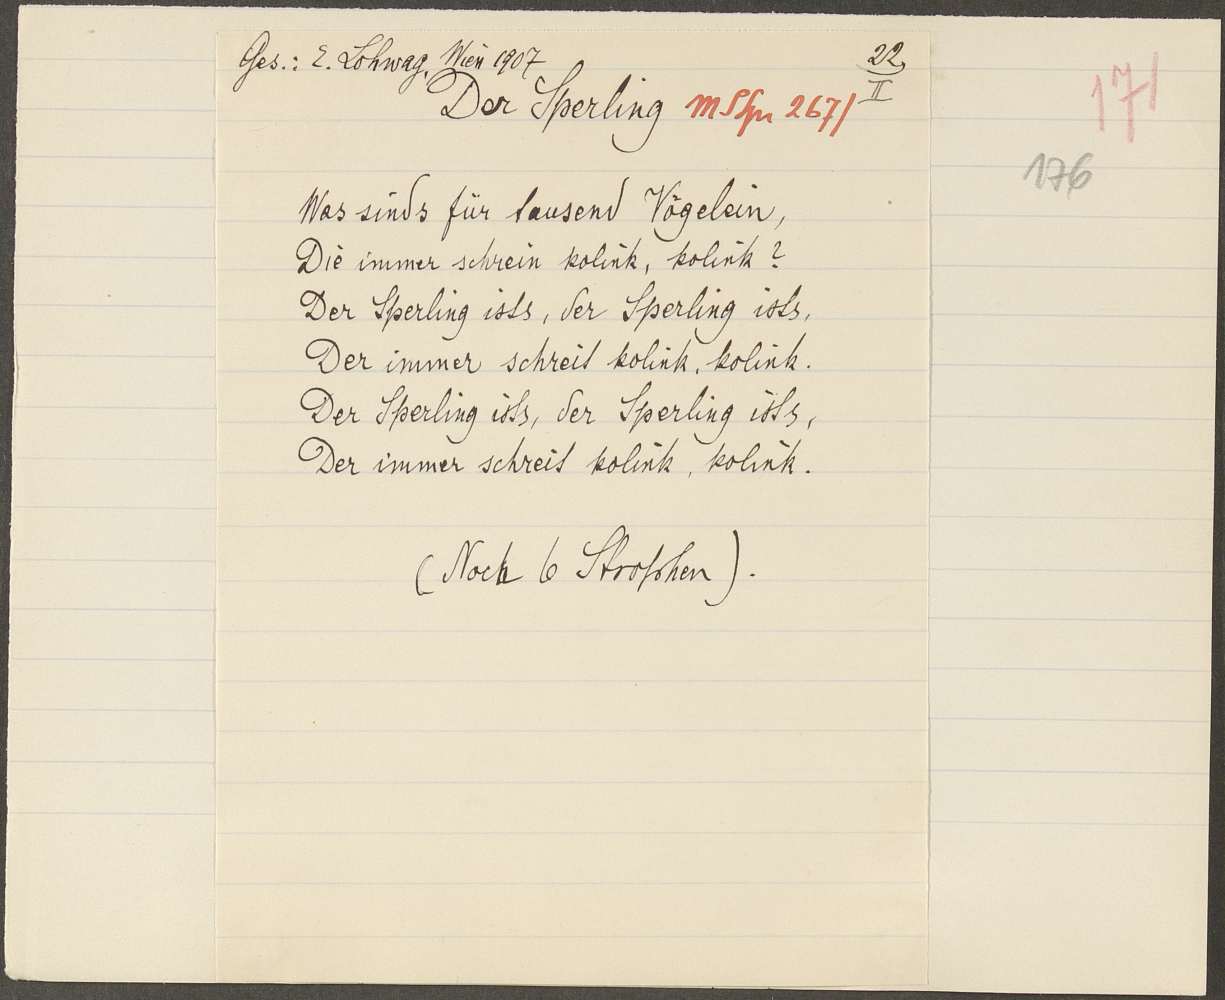 Ges.: E. Lohwag, Wien 1907
22
II
Der Sperling
267/
17/
176
Was sinds für tausend Vögelein,
Die immer schrein kolink, kolink?
Der Sperling ists, der Sperling ists,
Der immer schreit kolink, kolink.
Der Sperling ists, der Sperling ists,
Der immer schreit kolink, kolink.
(Noch 6 Strophen).